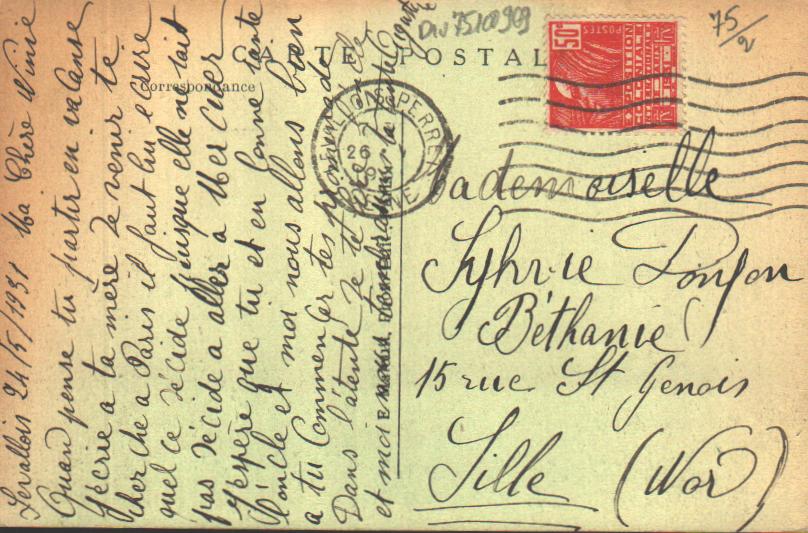 CARTE POSTALE
Correspondance
Div 75100909
75/2
50c
POSTES
LEVALLOIS-PERRET
26
SEINE
Levallois 24/5/1931 Ma Chère Ninie
Quand pense tu partir en vacanse
J'écrie a ta mère de venir te
cherche a Paris il faut lui ecrire
quel ce décide puisque elle ne
pas décide a aller a Mercuer
J'espère que tu et en bonne sante
l'oncle et moi nous allons bien
a tu commencer tes promenade
Dans l'atente de te
et moi ta tante
Mademoiselle
Sylvie
Béthanie
15 rue St Genois
Lille (Nor)